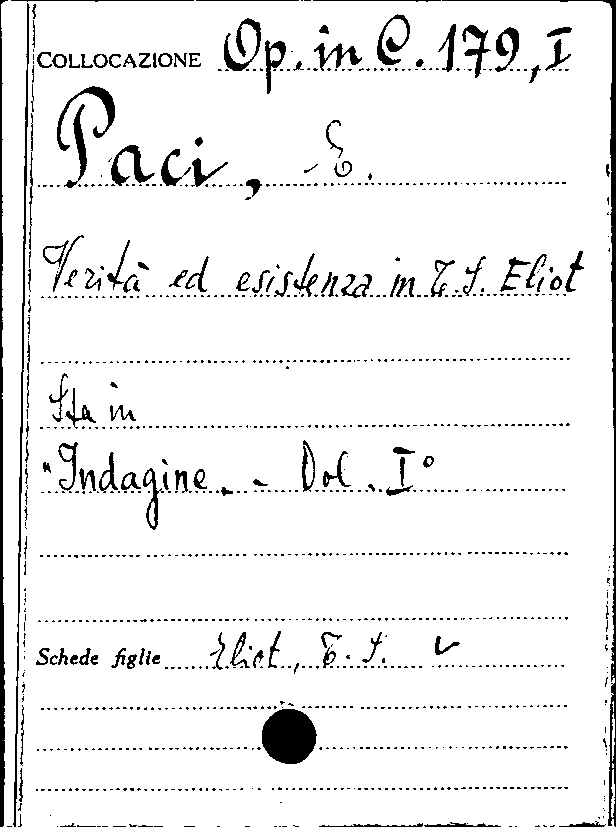 COLLOCAZIONE Op. in C. 179, I
Paci, E.
Verità ed esistenza in T. S. Eliot
Sta in
"Indagine. - Vol. I°
Schede figlie Eliot, T. S. ✓